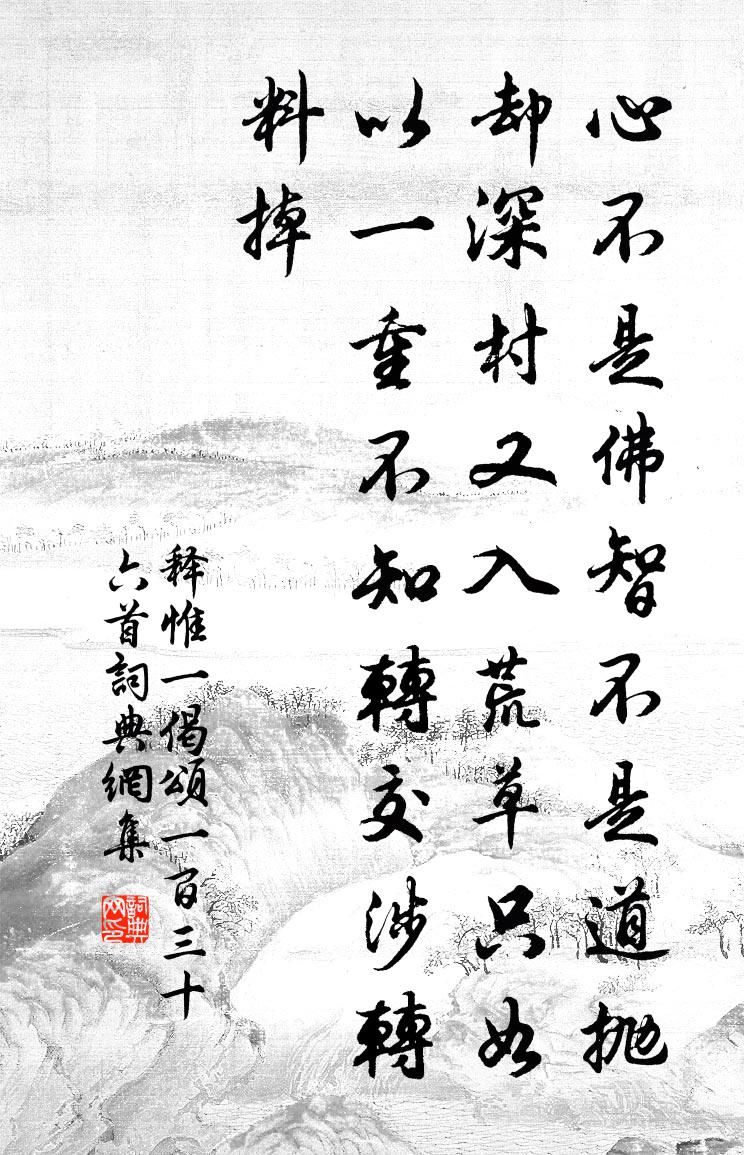 心不是佛智不是道抛
却深村又入荒草只如
以一重不知轉交涉轉
料掉
释惟一偈頌一百三十
六首詞典網集
詞典网印